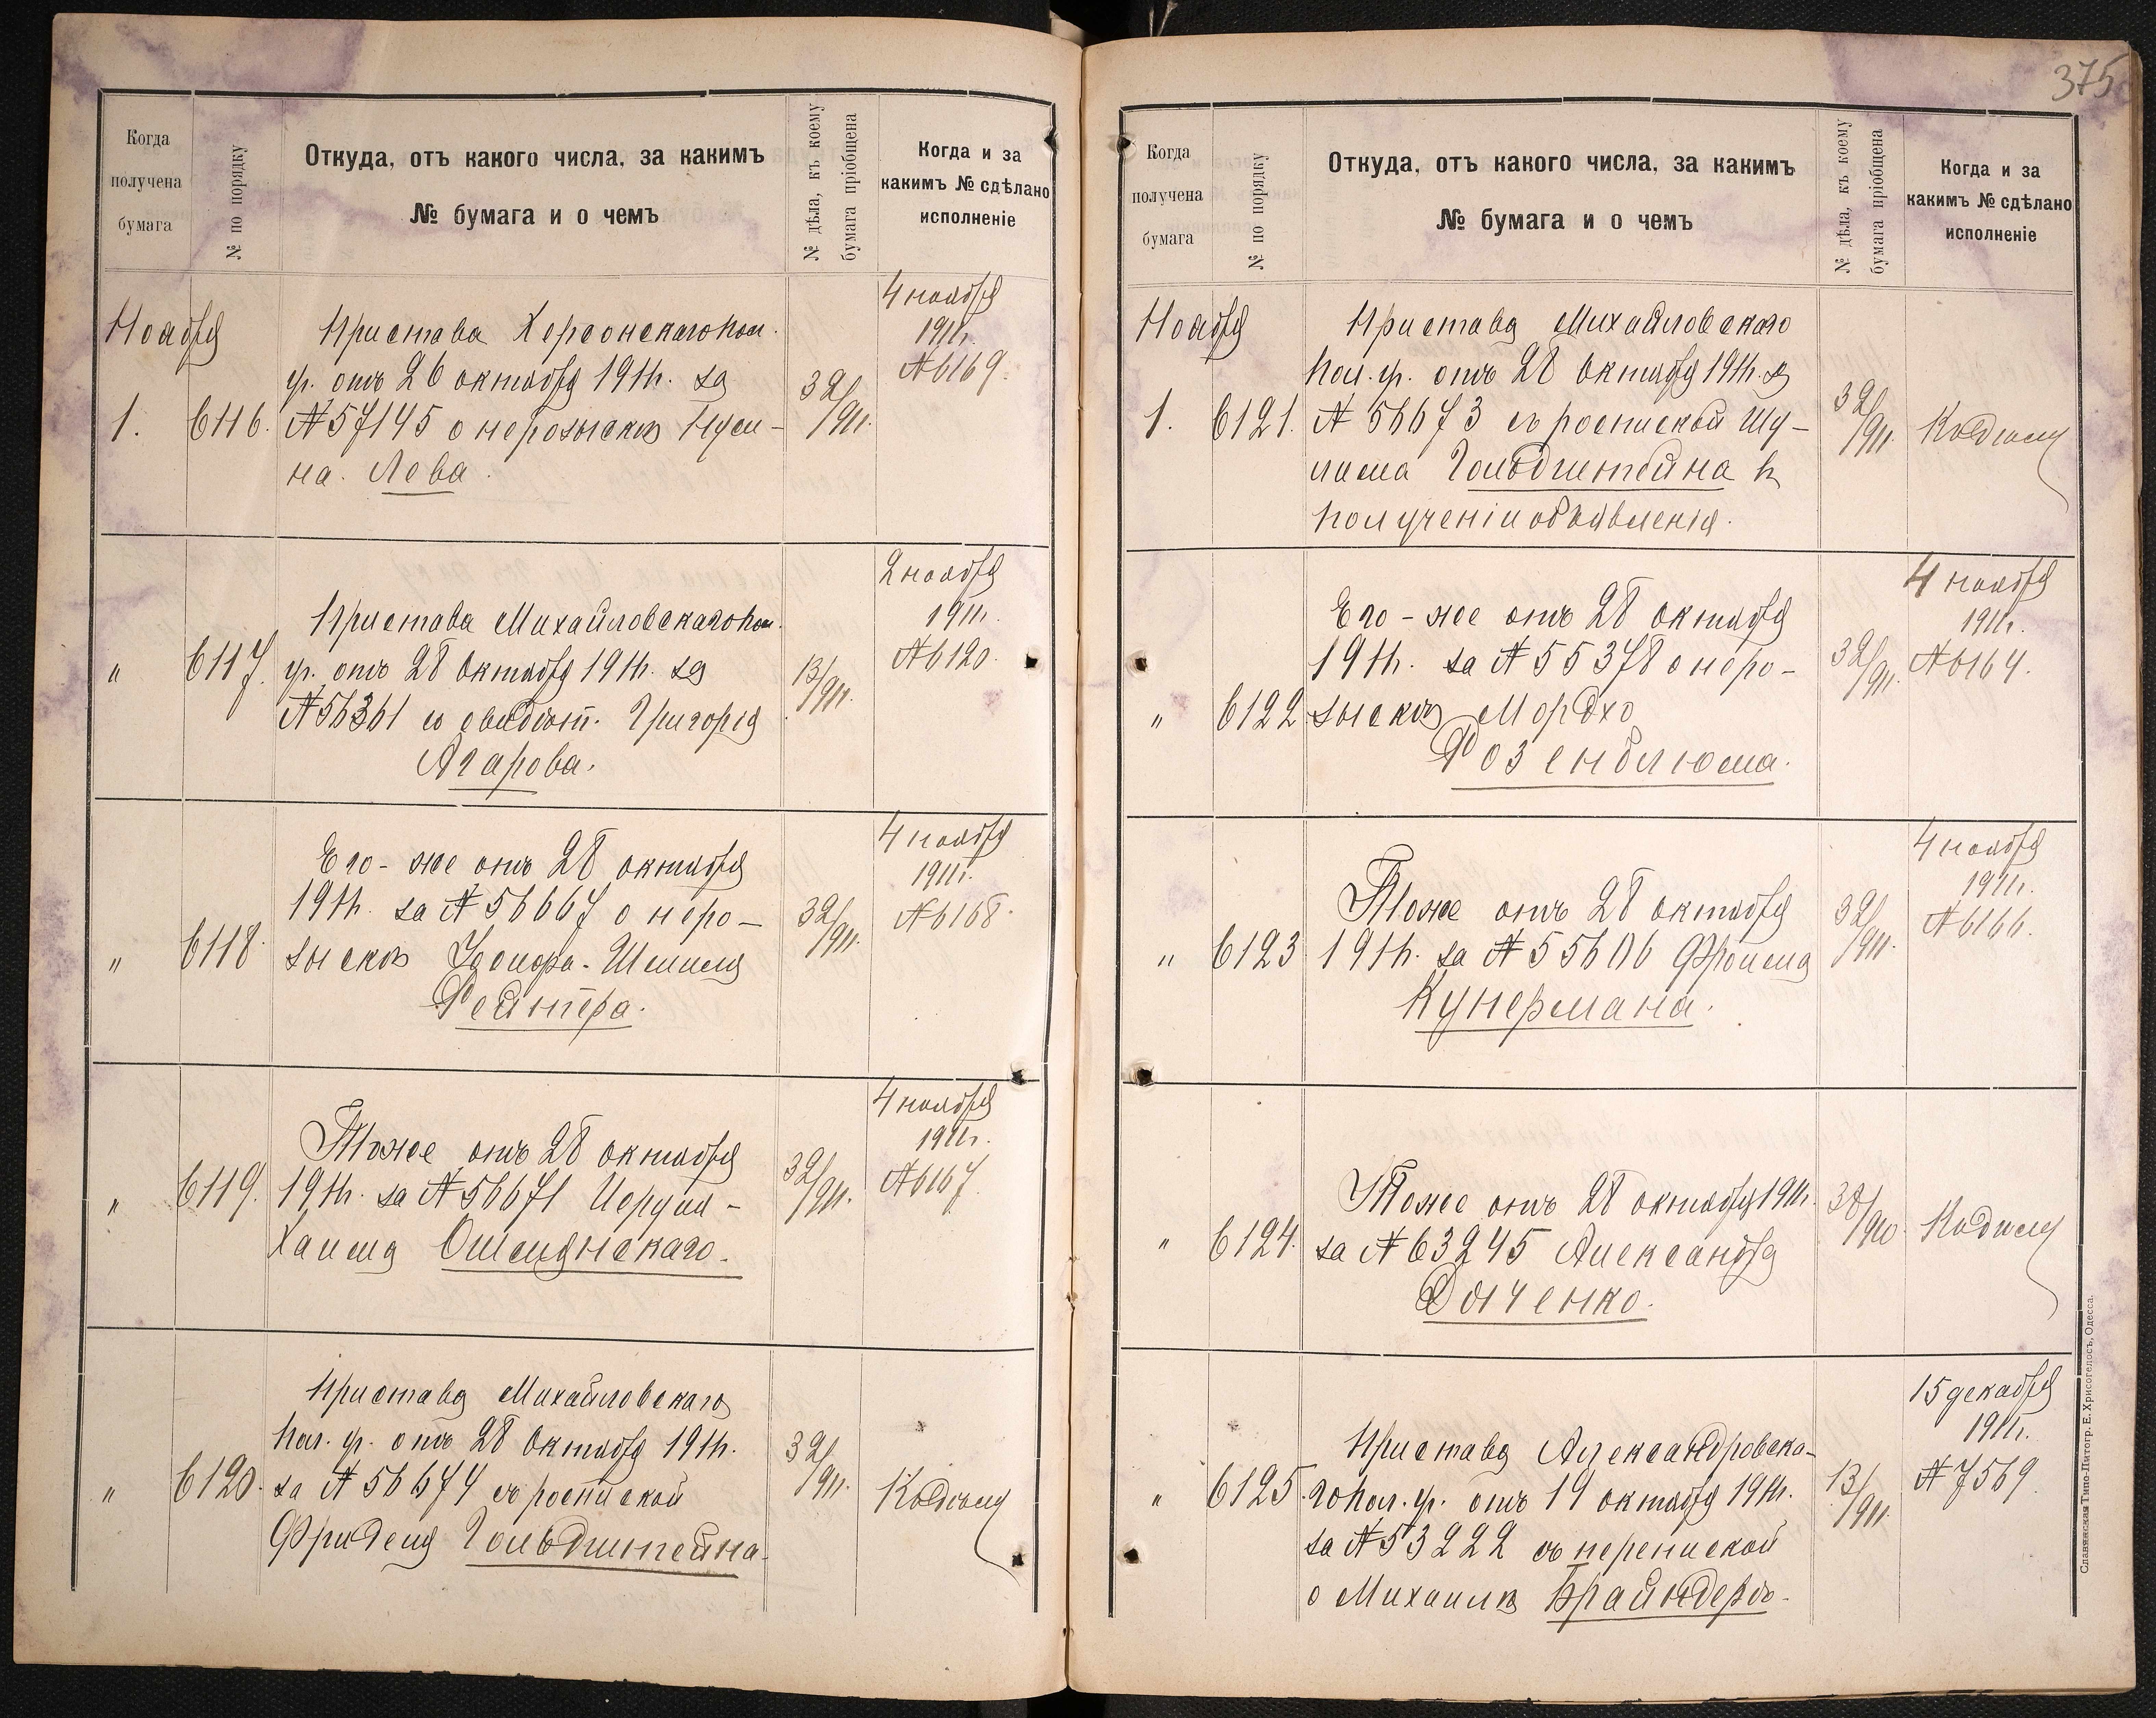 Когда
получена
бумага
№ по порядку
Откуда, отъ какого числа, за какимъ
№ бумага и о чемъ
№ дѣла, къ коему
бумага пріобщена
Когда и за
какимъ № сдѣлано
исполненіе
Ноября
1.
6116.
Пристава Херсонскаго пол.
уч. отъ 26 октября 1911г. за
№ 57145 о нерозыскѣ Нуси-
на Лева.
32/911.
4 ноября
1911г.
№ 6169.
"
6117.
Пристава Михайловскаго пол.
уч. отъ 28 октября 1911г. за
№ 56361 со свидѣт. Григорія
Агарова.
13/911.
2 ноября
1911г.
№ 6120.
"
6118.
Его-же отъ 28 октября
1911г. за № 56667 о неро-
зыскѣ
Рейтера.
32/911.
4 ноября
1911г.
№ 6168.
"
6119.
Тоже отъ 28 октября
1911г. за № 56671
Хаима Ошемянскаго.
32/911.
4 ноября
1911г.
№ 6167.
"
6120.
Пристава Михайловскаго
пол. уч. отъ 28 октября 1911г.
за № 56674 съ роспиской
Фриделя Гольдштейна.
32/911.
Къ дѣлу
375
Когда
получена
бумага
№ по порядку
Откуда, отъ какого числа, за какимъ
№ бумага и о чемъ
№ дѣла, къ коему
бумага пріобщена
Когда и за
какимъ № сдѣлано
исполненіе
Ноября
1.
6121.
Пристава Михайловскаго
пол. уч. отъ 28 октября 1911г. за
№ 56673 съ роспиской Шу-
лима Гольдштейна въ
полученіи объявленія.
32/911.
Къ дѣлу
"
6122
Его-же отъ 28 октября
1911г. за № 55378 о неро-
зыскѣ Мордхо
Розенблюма.
32/911.
4 ноября
1911г.
№ 6164.
"
6123
Тоже отъ 28 октября
1911г. за № Фроима
Купермана.
32/911.
4 ноября
1911г.
№ 6166.
"
6124.
Тоже отъ 28 октября 1911г.
за № 63245 Александра
Дотченко.
38/910.
Къ дѣлу
"
6125.
Пристава Александровска-
го пол. уч. отъ 19 октября 1911г.
за № 53222 съ перепиской
о Михаилѣ Брайндерѣ.
13/911.
15 декабря
1911г.
№ 7569.
Славянская Типо-Литогр. Е. Хрисогелосъ, Одесса.